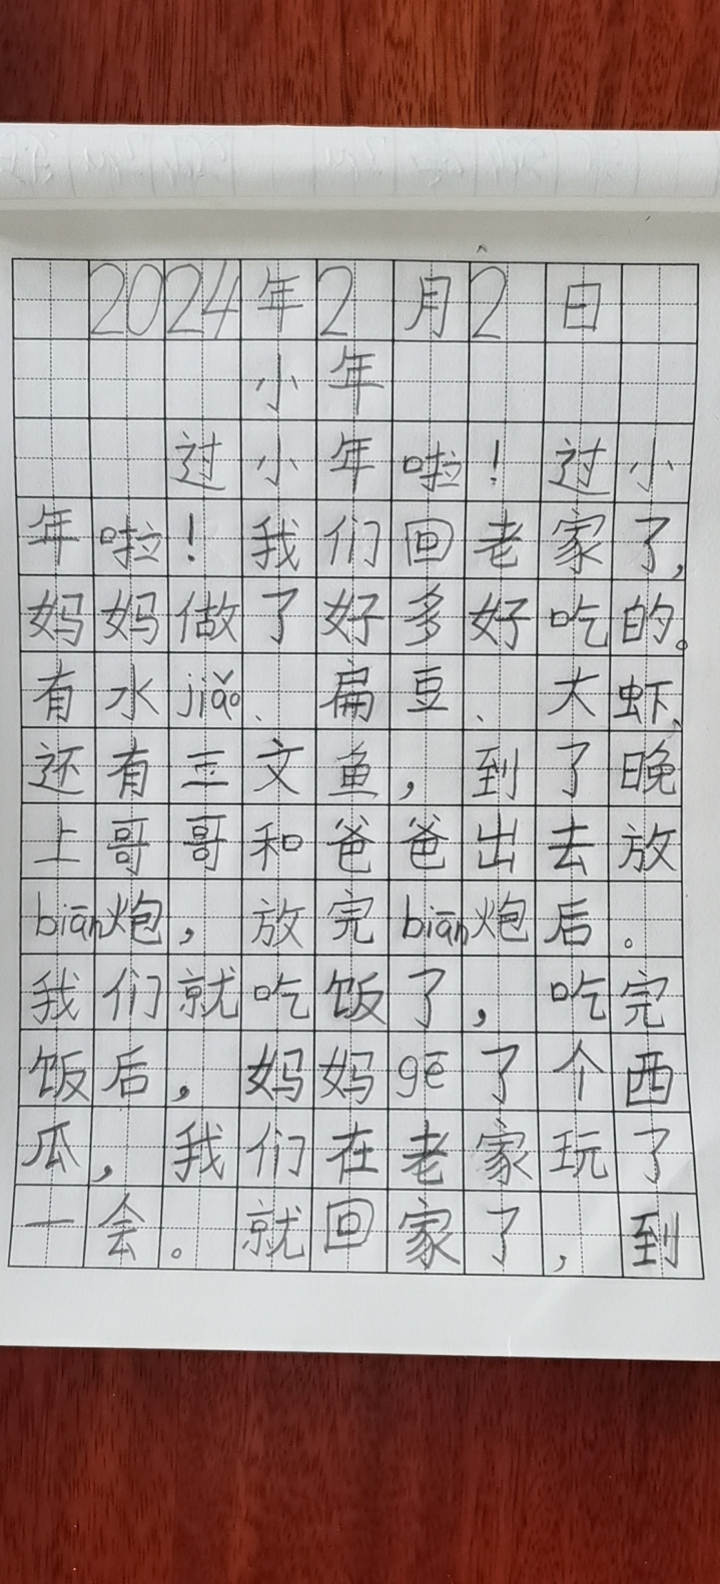 2024年2月2日
小年
过小年啦！过小
年啦！我们回老家了，
妈妈做了好多好吃的。
有水jiǎo、扁豆、大虾、
还有三文鱼，到了晚
上哥哥和爸爸出去放
biān炮，放完biān炮后。
我们就吃饭了，吃完
饭后，妈妈gē了个西
瓜，我们在老家玩了
一会。就回家了，到